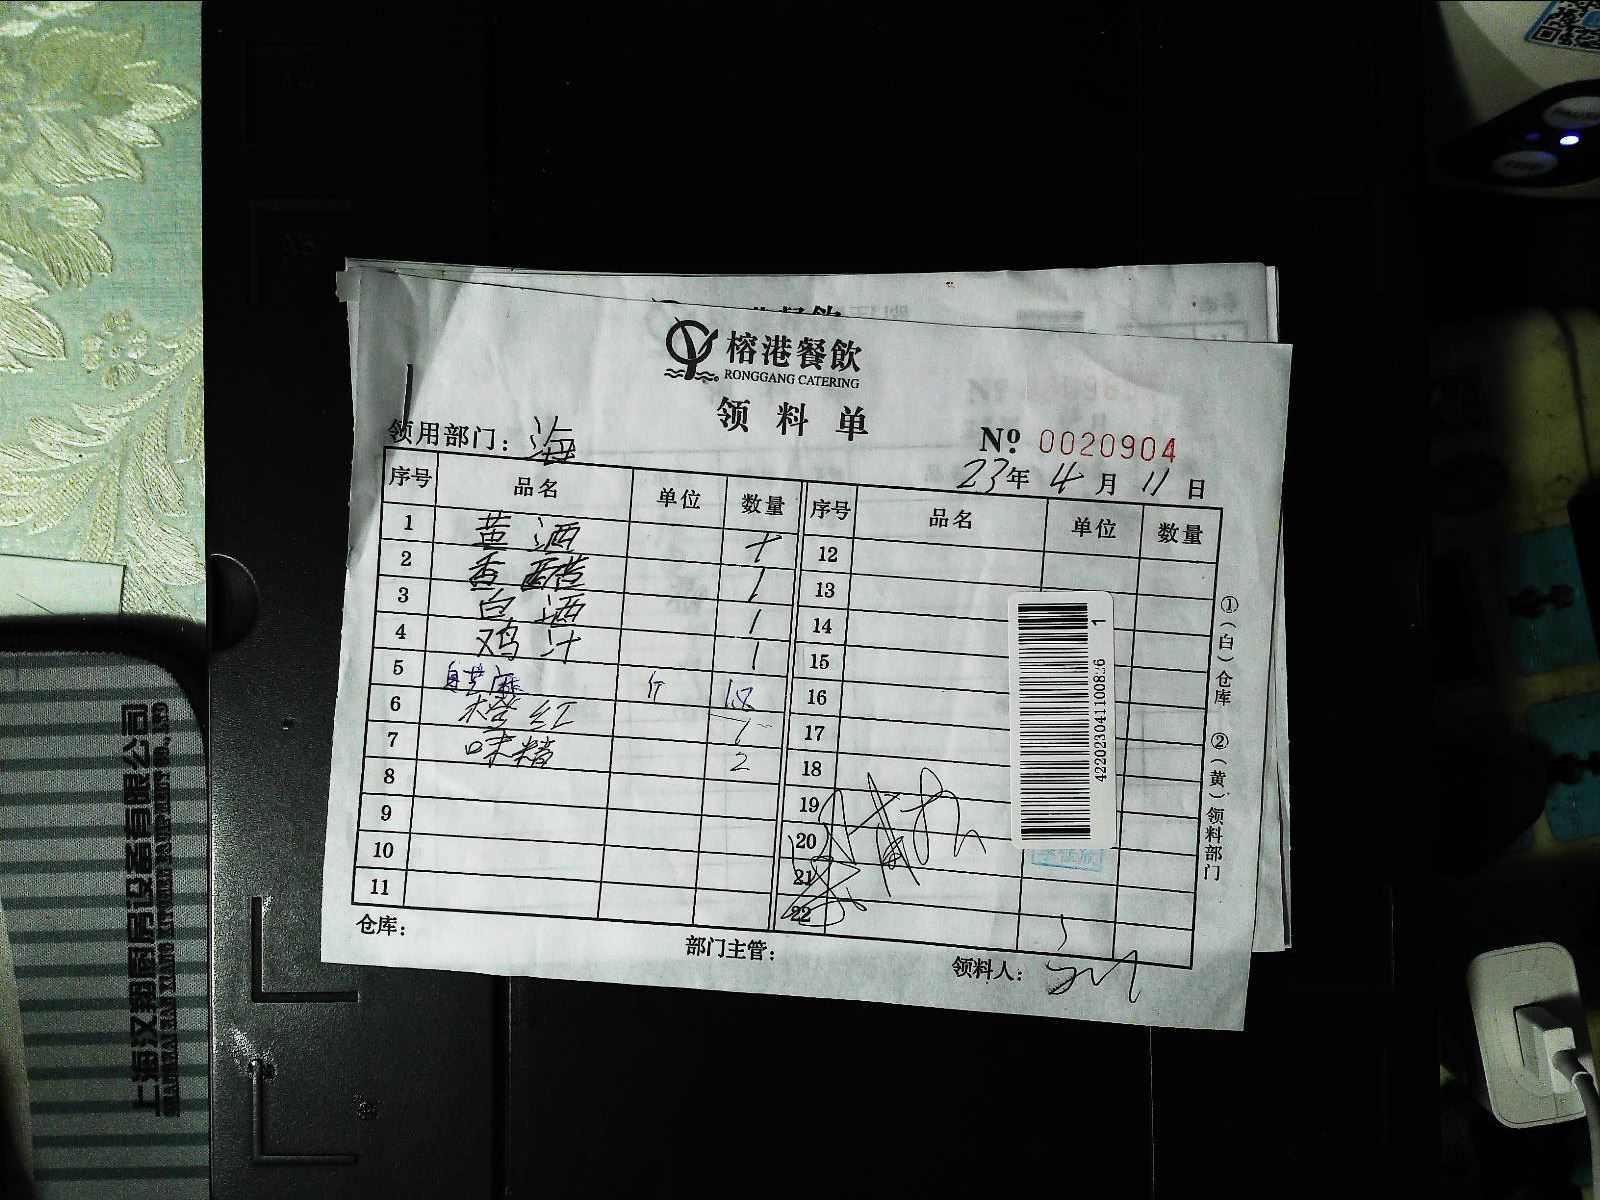 榕港餐飲
RONGGANG CATERING
领料单
领用部门：海
Nº 0020904
23年4月11日
序号 品名 单位 数量 序号 品名 单位 数量
1 黄酒 十 12
2 香醋 1 13
3 白酒 1 14
4 鸡汁 1 15
5 白芝麻 斤 16
6 橙红 1 17
7 味精 2 18
8 19
9 20
10 21
11 22
4220230411100826 1
①（白）仓库 ②（黄）领料部门
仓库：
部门主管：
领料人：
上海汉翔厨房设备有限公司